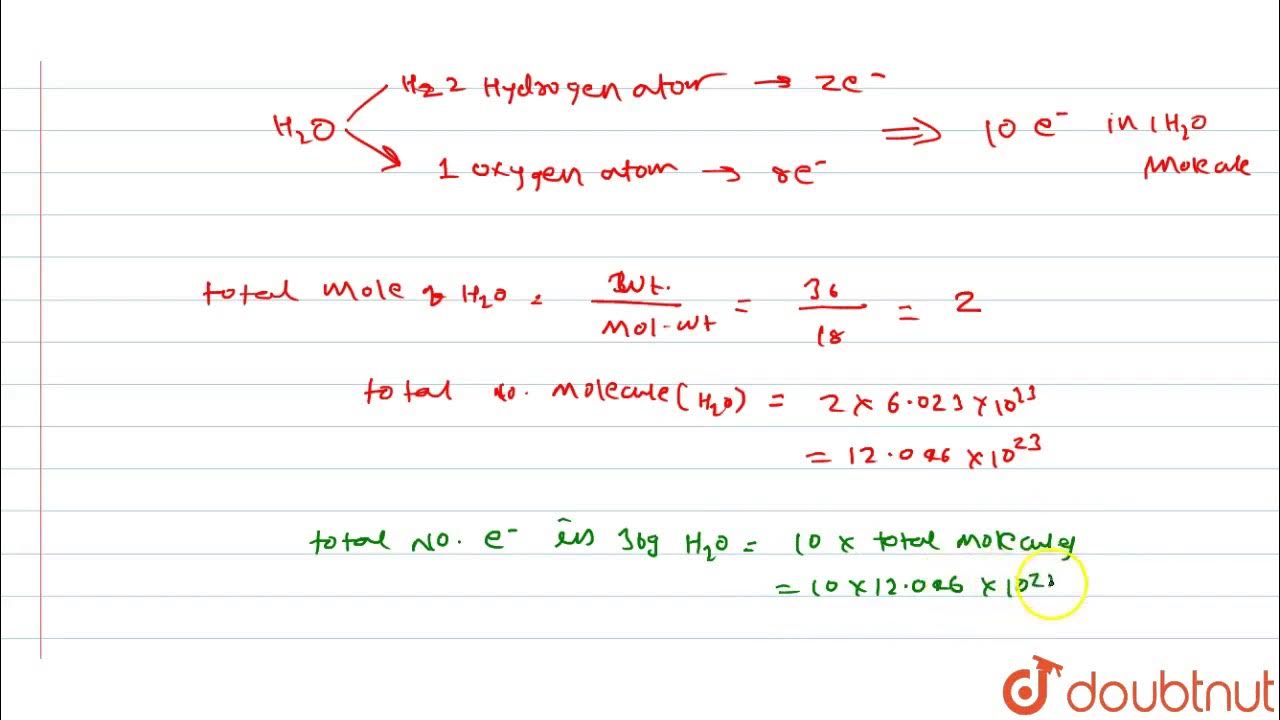 H₂O
H2 2 Hydrogen atom → 2e⁻
1 oxygen atom → 8e⁻
⇒ 10 e⁻ in 1 H₂O
Molecule
total mole of H₂O = Wt. / Mol-Wt = 36 / 18 = 2
total no. molecule (H₂O) = 2 × 6.023 × 10²³
= 12.046 × 10²³
total NO. e⁻ in 36g H₂O = 10 × total molecules
= 10 × 12.046 × 10²³
doubtnut